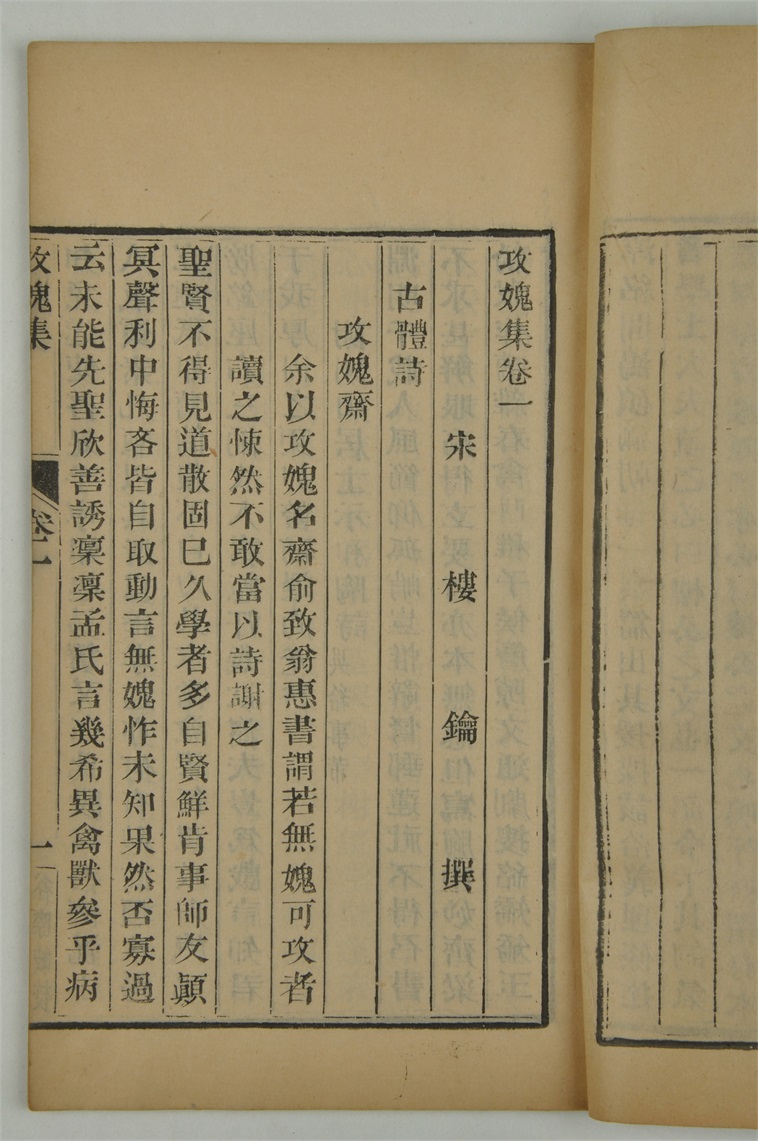 攻媿集卷一
宋 樓 鑰 撰
古體詩
攻媿齋
余以攻媿名齋俞致翁惠書謂若無媿可攻者
讀之悚然不敢當以詩謝之
聖賢不得見道散固已久學者多自賢鮮肯事師友顚
冥聲利中悔吝皆自取動言無媿怍未知果然否寡過
云未能先聖欣善誘凜凜孟氏言幾希異禽獸參乎病
攻媿集
卷一
一